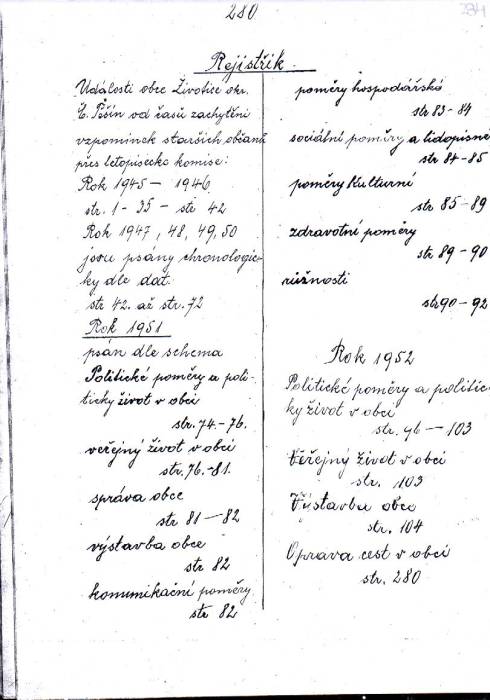 280
234
Rejistřík.
Události obce Životic okr.
Č. Těšín od časů zachytění
vzpomínek starších občanů
přes letopisecké komise:
Rok 1945 – 1946
str. 1 - 35 – str 42
Rok 1947, 48, 49, 50
jsou psány chronologic-
ky dle dat.
str 42. až str. 72
Rok 1951
psán dle schema
Politické poměry a poli-
ticky život v obci
str. 74. - 76.
veřejný život v obci
str. 76. - 81.
správa obce
str 81 – 82
výstavba obce
str 82
komunikační poměry.
str 82
poměry hospodářské
str 83 - 84
sociální poměry a lidopisné
str 84 - 85
poměry Kulturní
str 85 - 89
zdravotní poměry
str 89 - 90
různosti
str 90 - 92
Rok 1952
Politické poměry a politic-
ky život v obci
str. 96 – 103
Veřejný život v obci
str. 103
Výstavba obce
str. 104
Oprava cest v obci
str. 280